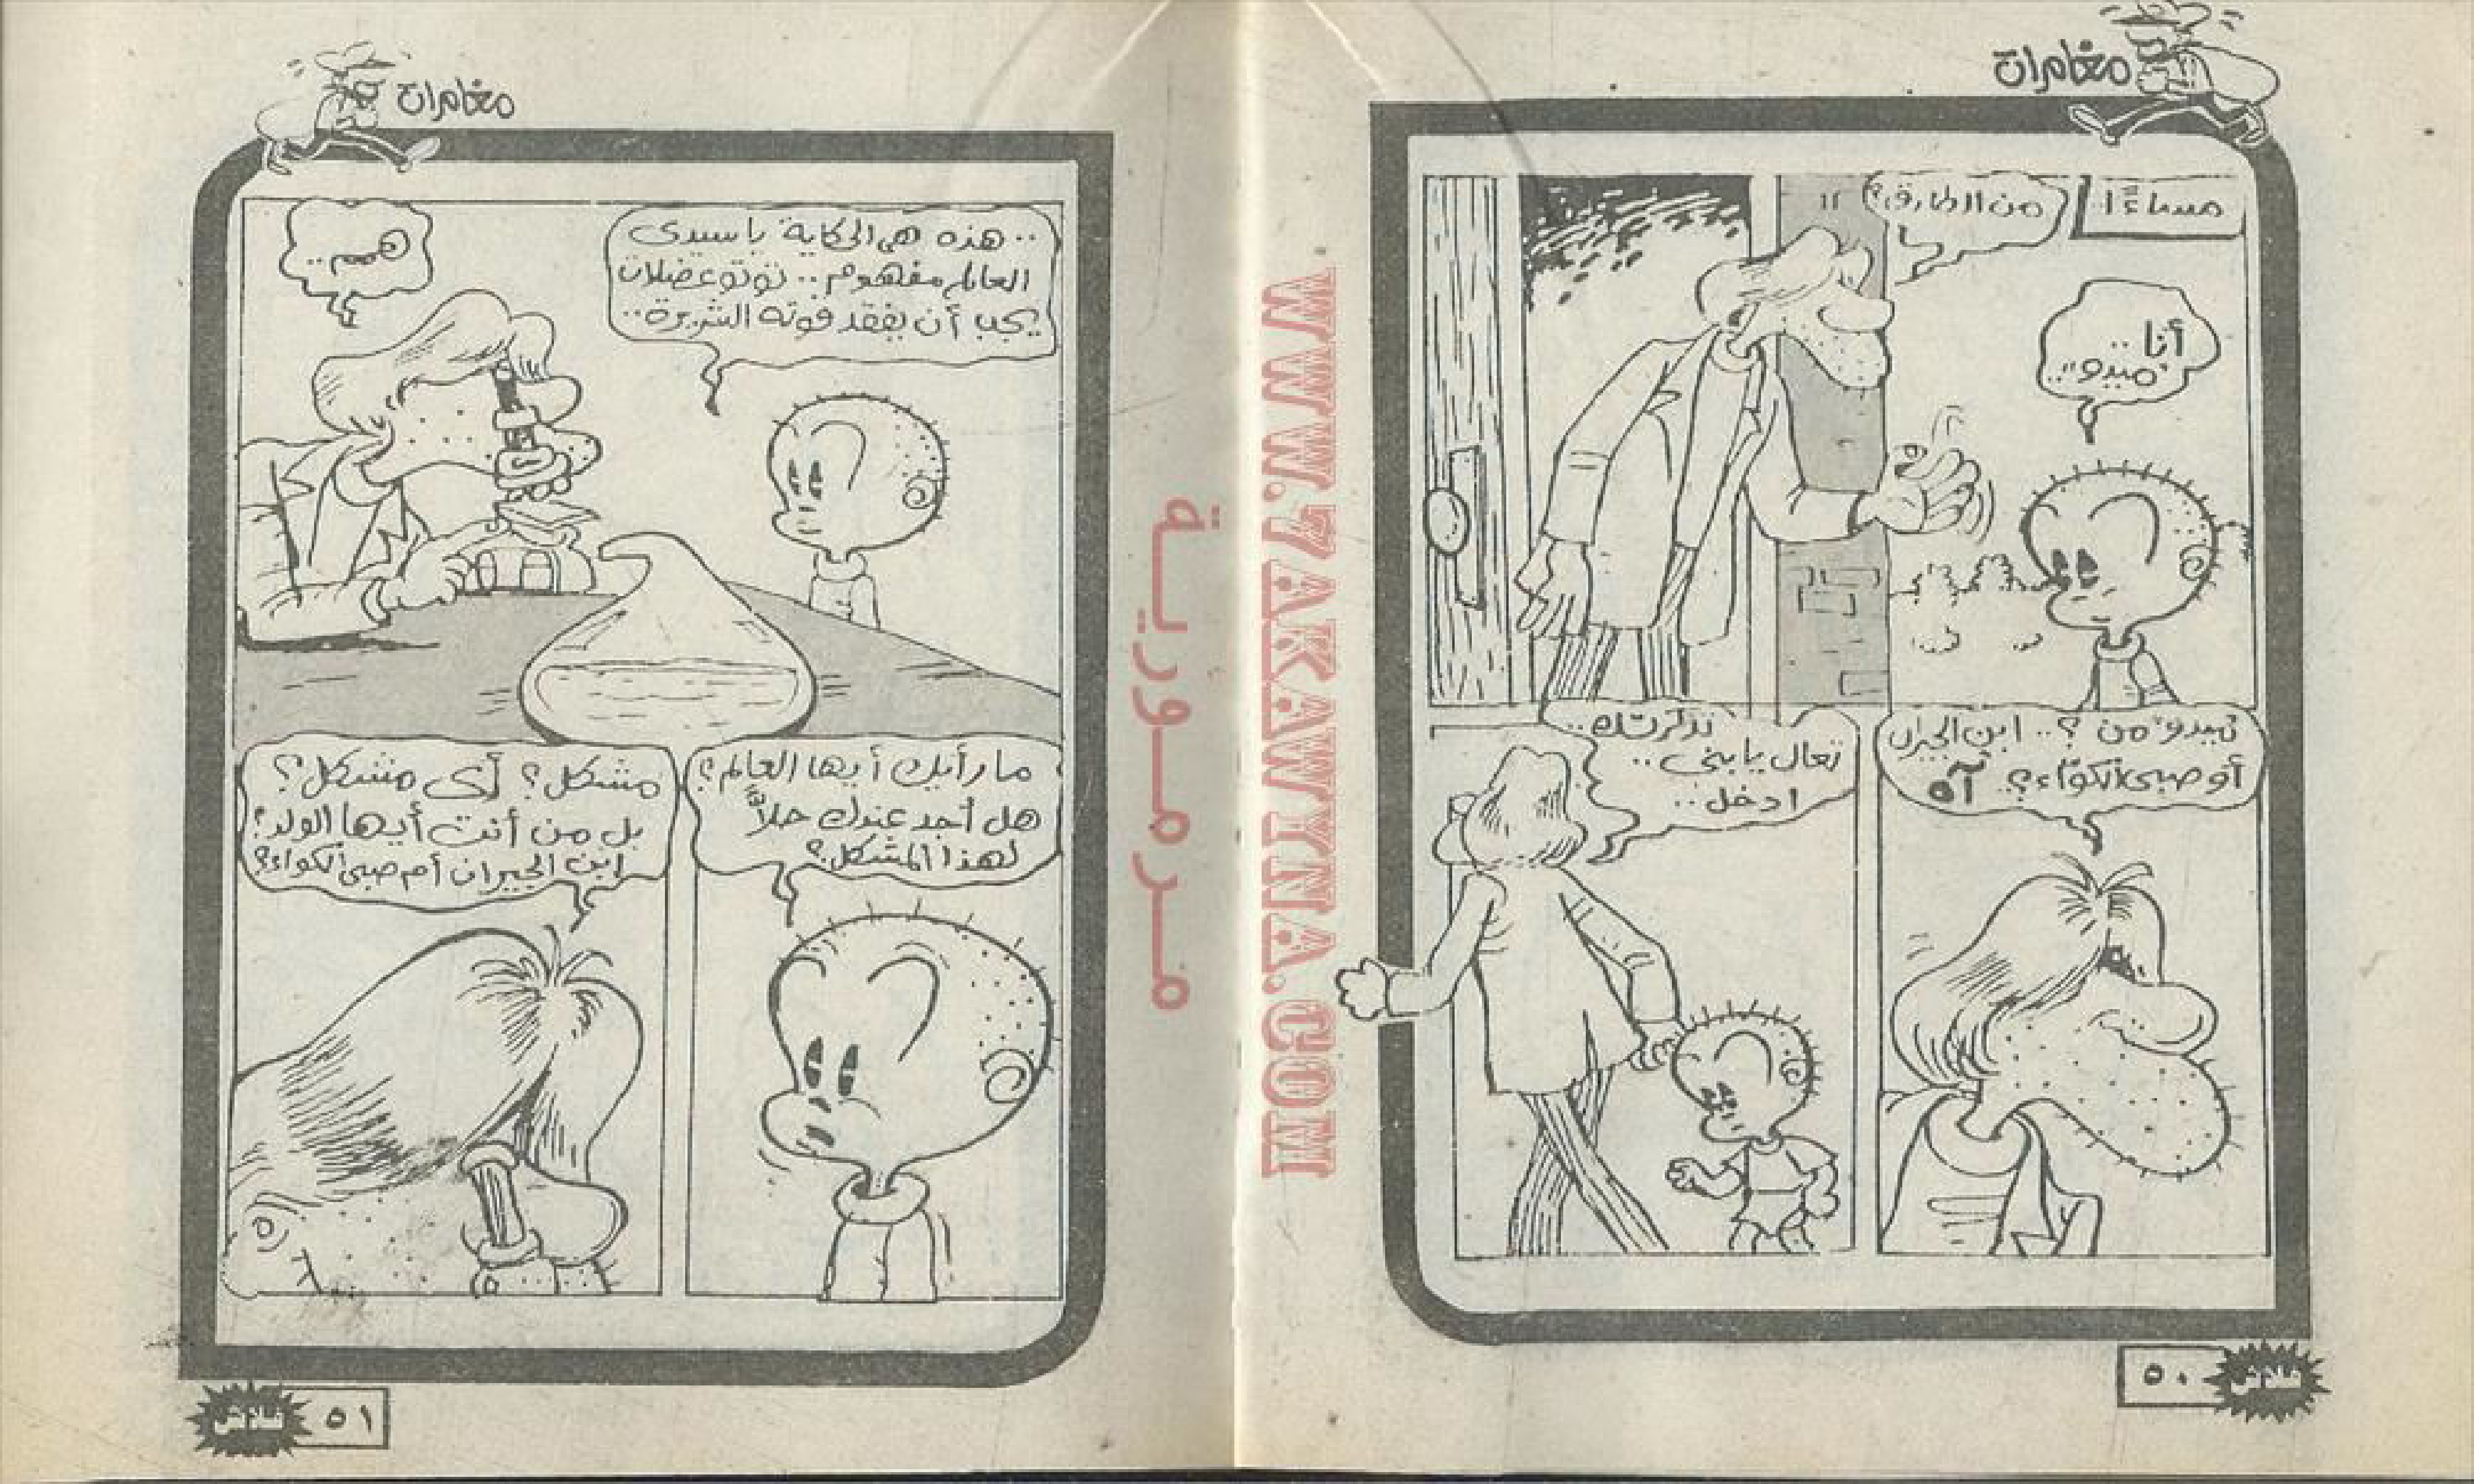 مغامرات
مساءً
من الطارق؟
أنا ..
"ميدو" ..
"ميدو" من ؟.. ابن الجيران
أو صبى الكوّاء؟. آه
تذكرتك..
تعال يا بنى ..
ادخل..
فلاش
٥٠
WWW.ZAKAWINA.COM
مرمورية
مغامرات
.. هذه هى الحكاية يا سيدى
العالم مفهوم .. توتو عضلات
يجب أن يفقد قوته الشريرة..
همم ..
ما رأيك أيها العالم؟
هل أجد عندك حلاًّ
لهذا المشكل؟
مشكل؟ أى مشكل؟
بل من أنت أيها الولد؟
ابن الجيران أم صبى الكواء؟
٥١
فلاش